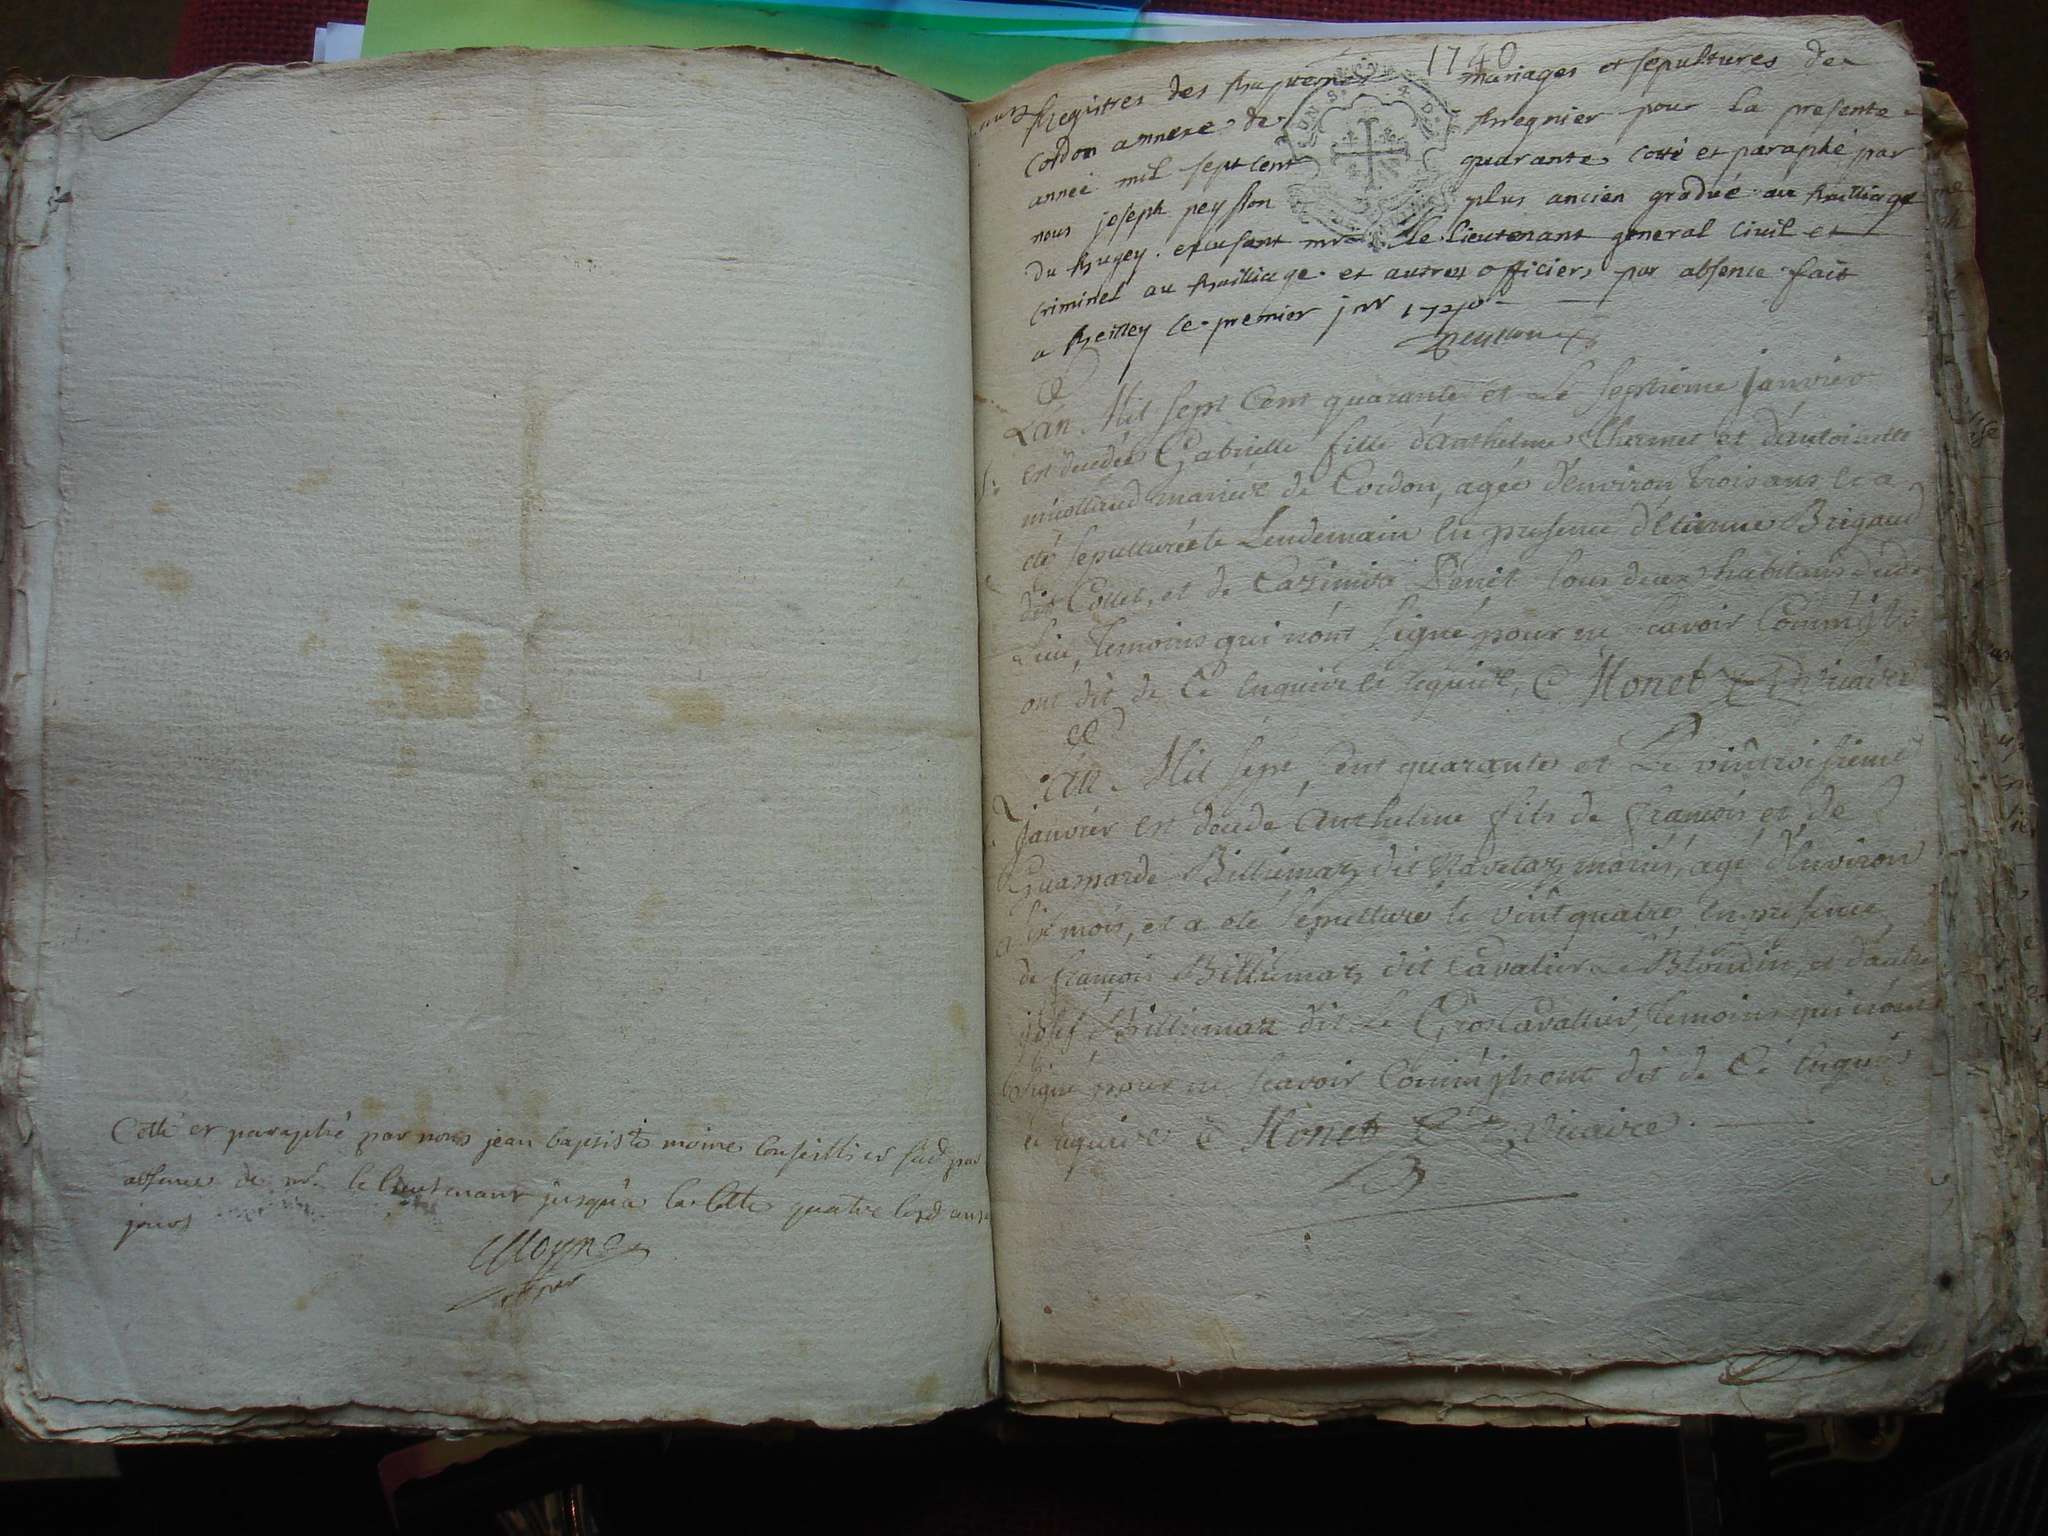 Cotté et paraphé par nous jean baptiste moine Conseillier sud par
absence de mr. le lieutenant jusqu'a la Cotte quatre lesd an et
jours
Moyne
1740
Registres des Baptemes mariages et sepultures de
Cordon annexe de Bregnier pour La presente
année mil sept cent quarante cotté et paraphé par
nous joseph peysson plus ancien gradué au Bailliage
du Bugey excusant mr Le Lieutenant general Civil et
Criminel au Bailliage et autres officiers par absence fait
a Belley le premier jer 1740
peysson
L'an Mil sept Cent quarante et Le septieme Janvier
est decedée Gabrielle fille d'Anthelme Charmet et d'Antoinette
micollaud mariéz de Cordon, agée d'environ trois ans et a
eté sepulturée le Lendemain En presence d'Etienne Brigaud
dit Collet, et de Cazimire Perret tous deux habitans dud.
Lieu, temoins qui n'ont signé pour ne scavoir Comm'ils
ont dit de Ce Enquis et requis, Monet vicaire
L'An Mil sept Cent quarante et Le vintroisieme
Janvier est decedé Anthelme fils de francois et de
Billiemaz dit mariés, agé d'Environ
six mois, et a eté sepulturé le vint quatre En presence
de francois Billiemaz dit Cavalier Le Blondin, et d'autre
josef Billiemaz dit Le Gros Cavallier, temoins qui n'ont
signé pour ne scavoir Comm'ils ont dit de Ce Enquis
et requis Monet vicaire